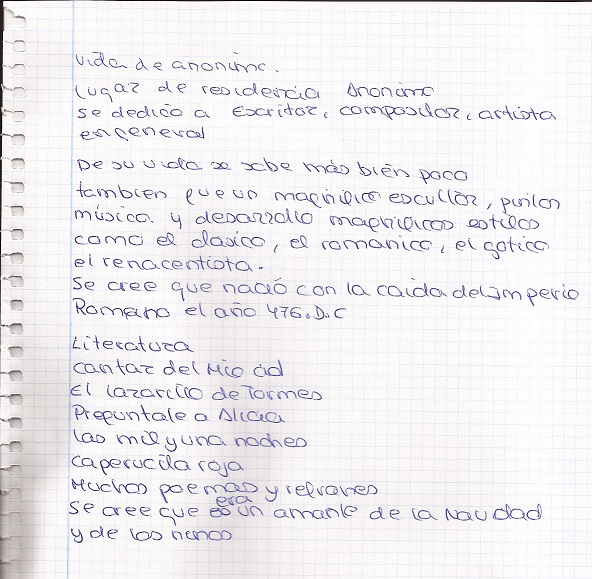 Vida de anonimo.
Lugar de residencia Anonimo
se dedico a Escritor, compositor, artista
en general
De su vida se sabe más bién poco
tambien que un magnifico escultor, pintor
músico. y desarrollo magnificos estilos
como el clasico, el romanico, el gotico
el renacentista.
Se cree que nació con la caida del imperio
Romano el año 476. D.C
Literatura
cantar del Mio cid
El Lazarillo de Tormes
Preguntale a Alicia
Las mil y una noches
caperucita roja
Muchos poemas y refranes
Se cree que era un amante de la Navidad
y de los